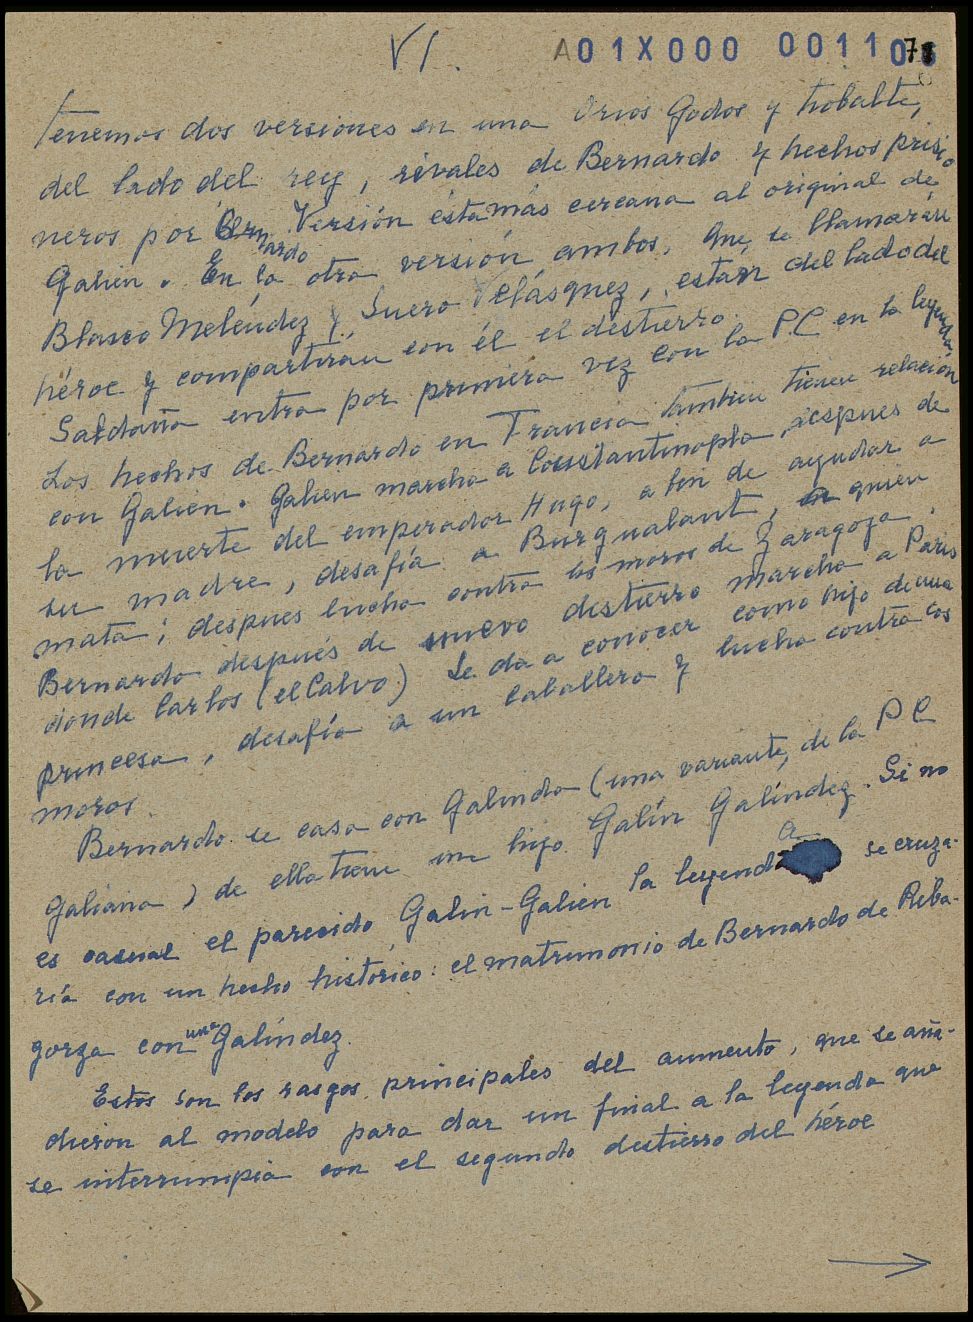 VI.
A01X000 0011 0
tenemos dos versiones en una Orios Godos y Tiobalte,
del lado del rey, rivales de Bernardo y hechos prisio
neros por Bernardo. Versión esta más cercana al original de
Galien. En la otra versión ambos, que se llamarán
Blasco Meléndez y Suero Velásquez, están del lado del
héroe y compartirán con él el destierro.
Saldaña entra por primera vez con la P.C en la leyenda
Los hechos de Bernardo en Francia tambien tienen relación
con Galien. Galien marcha a Constantinopla, despues de
la muerte del emperador Hugo, a fin de ayudar a
su madre, desafía a Burgualant, a quien
mata; despues lucha contra los moros de Zaragoza.
Bernardo después de nuevo destierro marcha a Paris
donde Carlos (el Calvo) se da a conocer como hijo de una
princesa, desafía a un caballero y lucha contra los
moros.
Bernardo se casa con Galinda (una variante, de la P C
Galiana) de ella tiene un hijo Galín Galíndez. Si no
es casual el parecido Galin-Galien la leyenda se cruza-
ría con un hecho histórico: el matrimonio de Bernardo de Riba-
gorza con una Galíndez.
Estos son los rasgos principales del aumento, que se aña-
dieron al modelo para dar un final a la leyenda que
se interrumpia con el segundo destierro del héroe